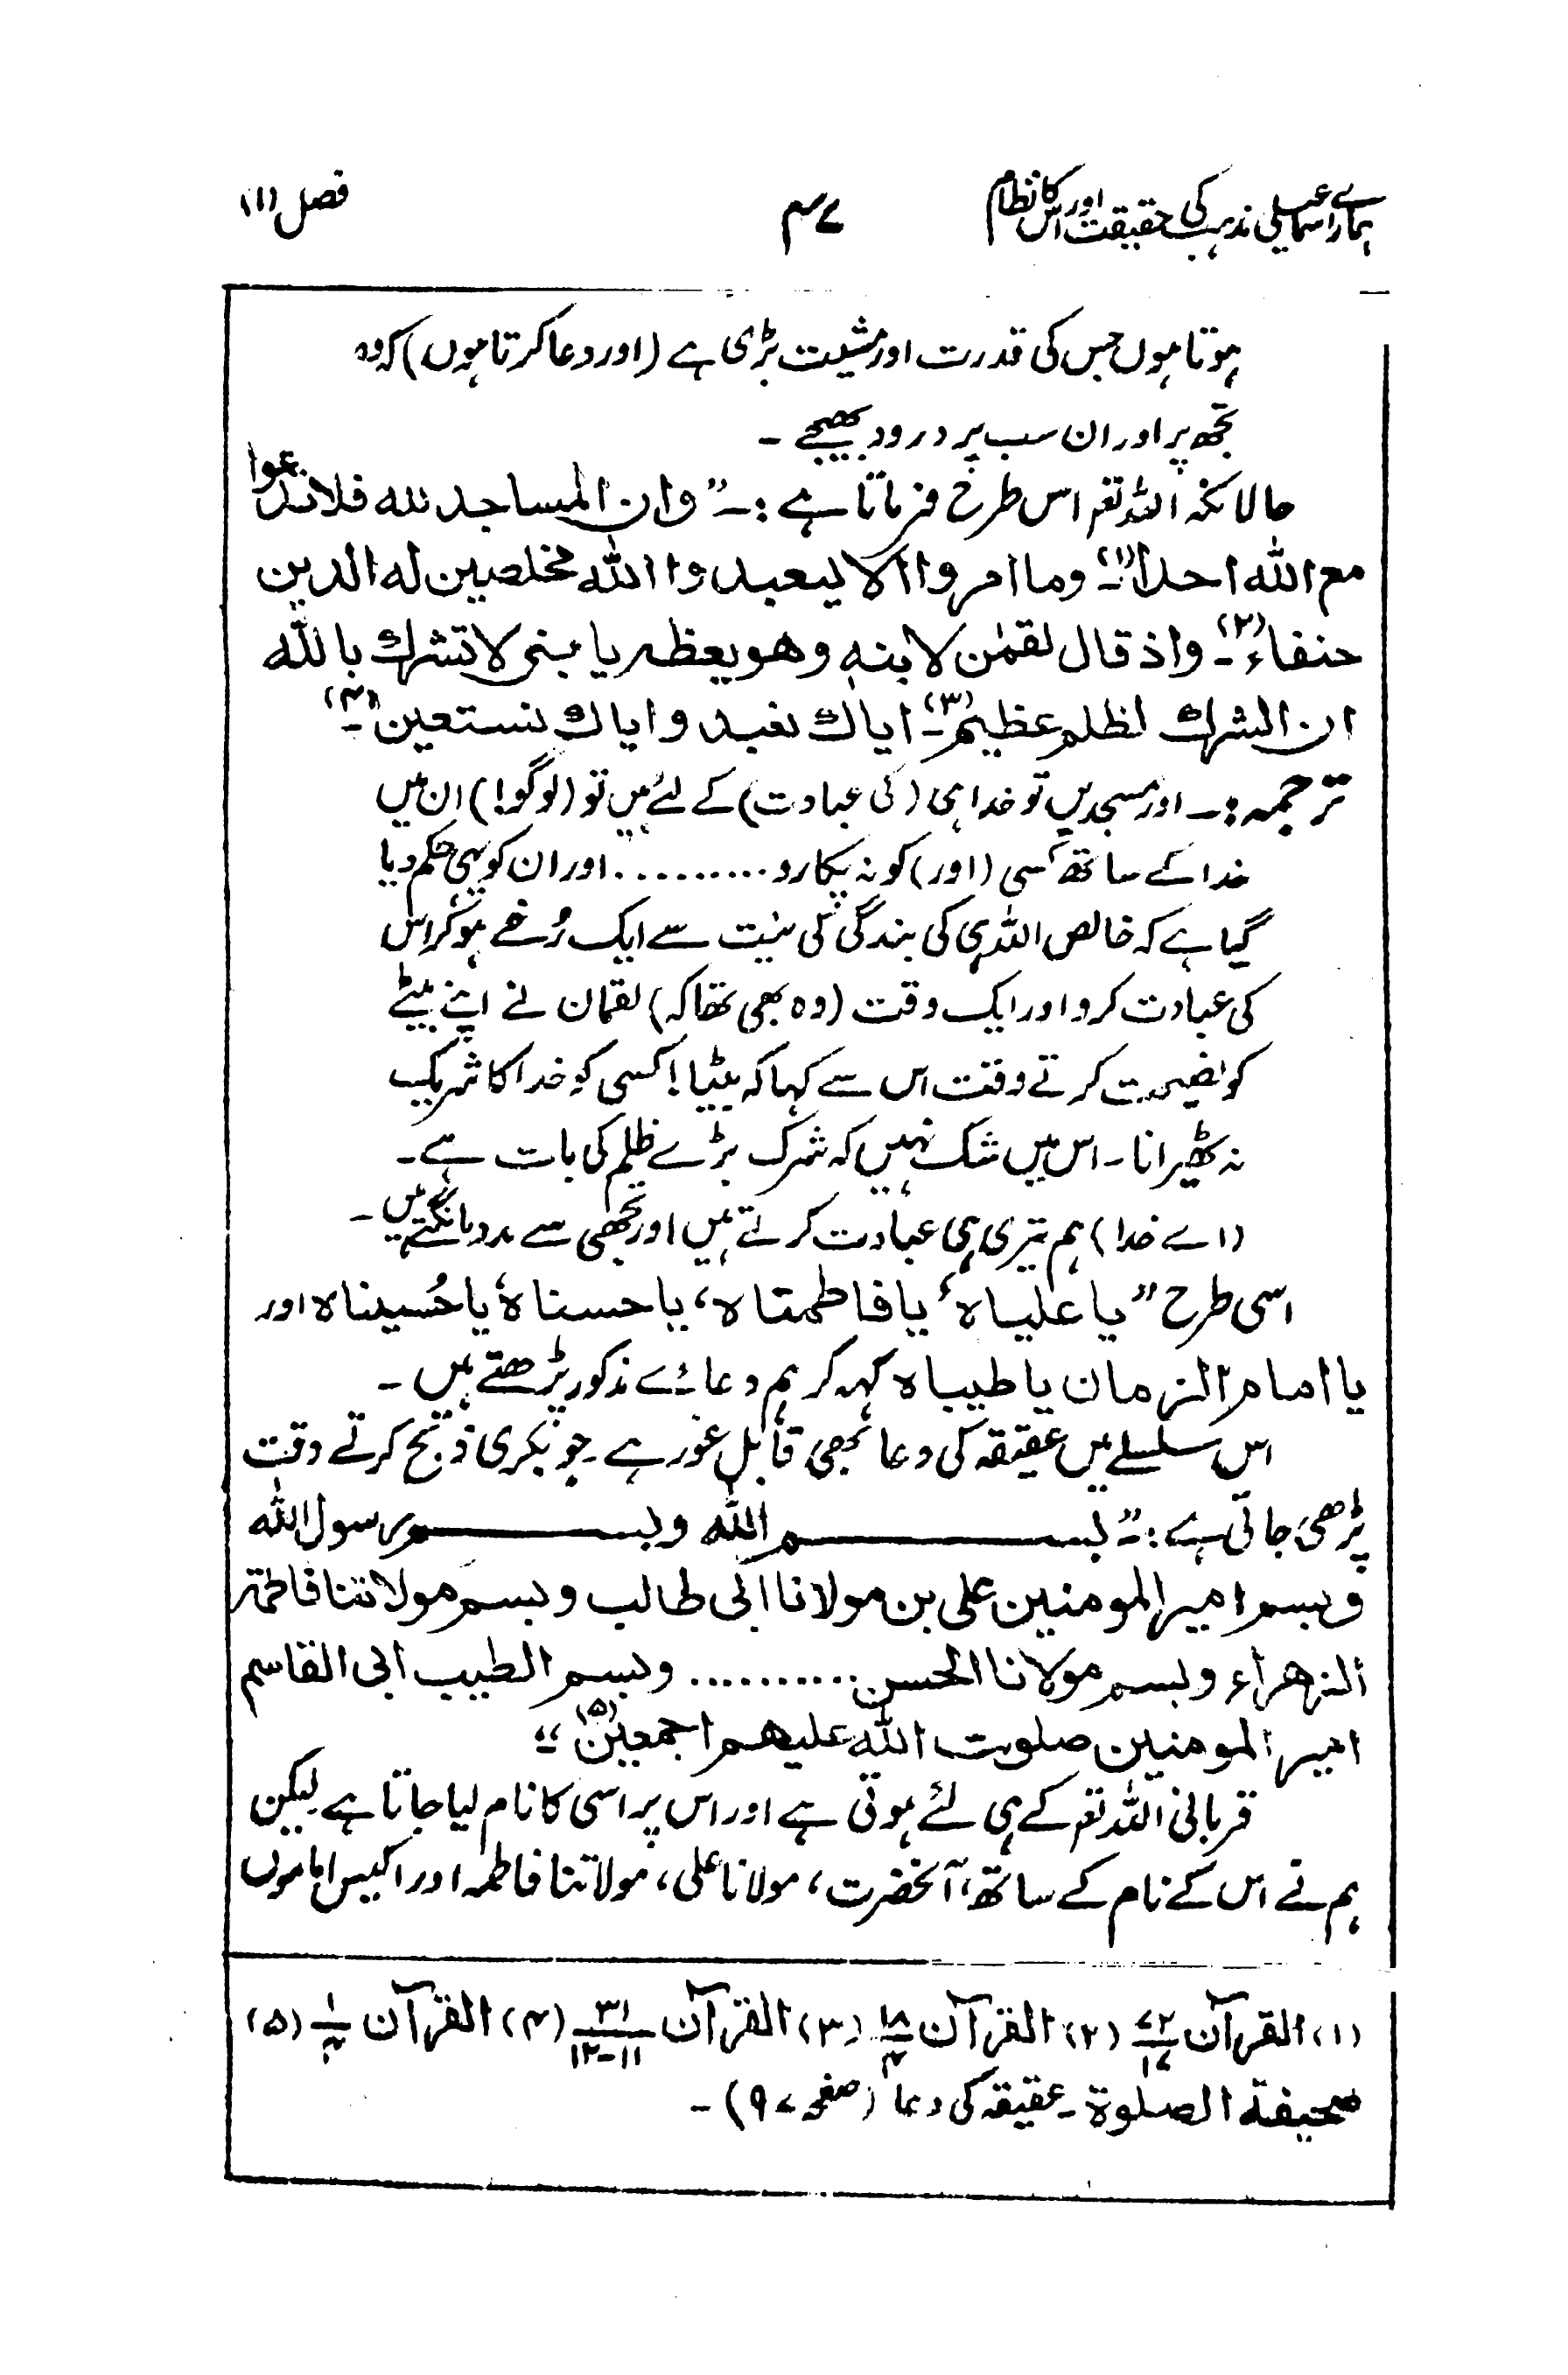 ہمارے اسماعیلی مذہب کی حقیقت اور اس کا نظام ۴۷ فصل (۱)
ہوتا ہوں جس کی قدرت اور مشیت بڑی ہے (اور دعا کرتا ہوں) کہ وہ
تجھ پر اور ان سب پر درود بھیجے ۔
حالانکہ اللہ تعم اس طرح فرماتا ہے :۔ ” وان المساجد للہ فلا تدعوا
مع اللہ احدا (۱)۔ وما امروا الا لیعبدوا اللہ مخلصین لہ الدین
حنفاء (۲)۔ واذ قال لقمٰن لابنہ وھو یعظہ یا بنی لا تشرك باللہ
ان الشرك لظلم عظیم (۳)۔ ایاك نعبد وایاك نستعین (۴)۔"
ترجمہ :۔ اور مسجدیں تو خدا ہی (کی عبادت) کے لئے ہیں تو (لوگو!) ان میں
خدا کے ساتھ کسی (اور) کو نہ پکارو .......... اور ان کو یہی حکم دیا
گیا ہے کہ خالص اللہ ہی کی بندگی کی نیت سے ایک رُخے ہو کر اس
کی عبادت کرو اور ایک وقت (وہ بھی تھا کہ) لقمان نے اپنے بیٹے
کو نصیحت کرتے وقت اس سے کہا کہ بیٹا! کسی کو خدا کا شریک
نہ ٹھیرانا ۔ اس میں شک نہیں کہ شرک بڑے ظلم کی بات ہے ۔
(اے خدا) ہم تیری ہی عبادت کرتے ہیں اور تجھی سے مدد مانگتے ہیں ۔
اسی طرح ” یا علیاہ، یا فاطمتاہ، یا حسناہ، یا حُسیناہ اور
یا امام الزمان یا طیباہ کہہ کر ہم دعائے مذکور پڑھتے ہیں ۔
اس سلسلے میں عقیقہ کی دعا بھی قابلِ غور ہے ۔ جو بکری ذبح کرتے وقت
پڑھی جاتی ہے :۔ ” بسم اللہ وبسم رسول اللہ
وبسم امیر المومنین علی بن مولانا ابی طالب وبسم مولاتنا فاطمۃ
الزھراء وبسم مولانا الحسن .......... وبسم الطیب ابی القاسم
امیر المومنین صلوت اللہ علیھم اجمعین (۵) ۔“
قربانی اللہ تعم کے ہی لئے ہوتی ہے اور اس پر اسی کا نام لیا جاتا ہے لیکن
ہم نے اس کے نام کے ساتھ، آنحضرت، مولانا علی، مولاتنا فاطمہ اور اکیس اماموں
(۱) القرآن ۷۲/۱۷ (۲) القرآن ۱۸/۴ (۳) القرآن ۳۱/۱۱-۱۲ (۴) القرآن ۱/۴ (۵)
صحیفۃ الصلوۃ ۔ عقیقہ کی دعا (صفحہ ۹۷) ۔